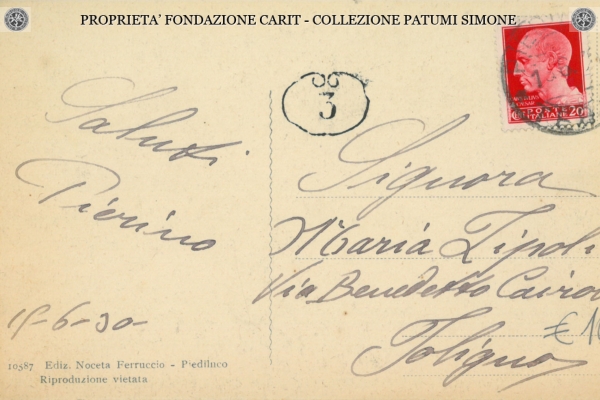 PROPRIETA' FONDAZIONE CARIT - COLLEZIONE PATUMI SIMONE
3
POSTE
ITALIANE 20
Saluti
Pierino
15-6-30-
Signora
Maria Tipoli
Via Benedetto Cairo
Foligno
€ 10
10587 Ediz. Noceta Ferruccio - Piediluco
Riproduzione vietata